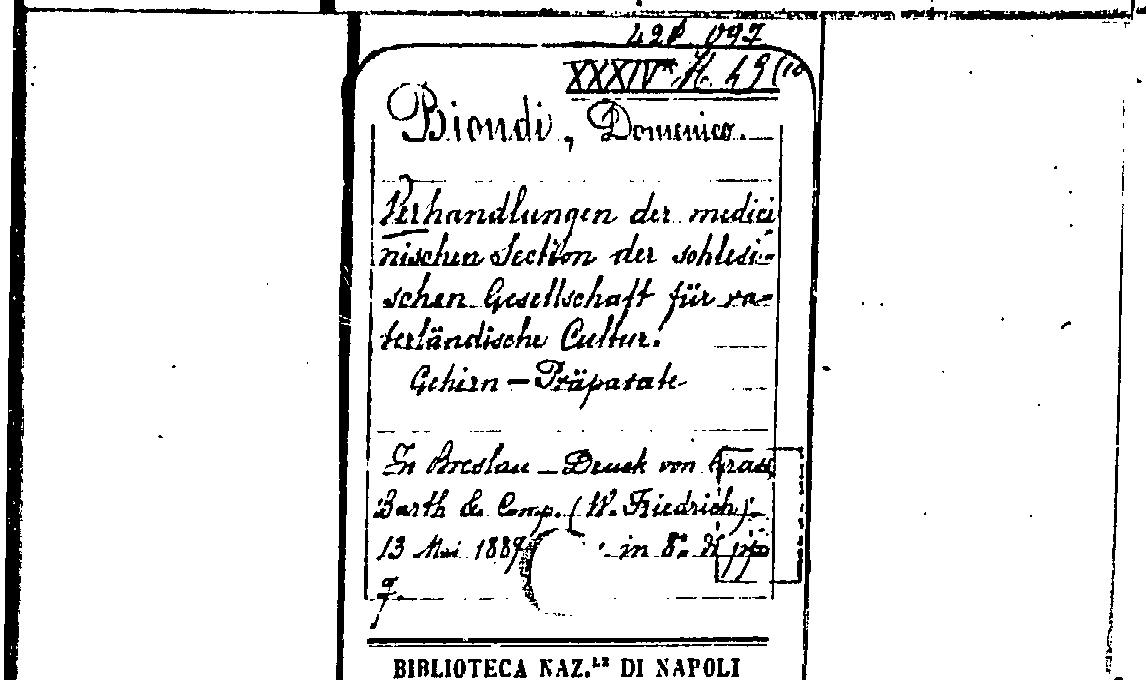 421 097
XXXIV* H. 49 (10
Biondi, Domenico.
Verhandlungen der medici
nischen Section der schlesi-
schen Gesellschaft für va-
terländische Cultur.
Gehirn - Präparate
In Breslau - Druck von Grass
Barth & Comp. (W. Friedrich) -
13 Mai 1887 in 8° di pp
7.
BIBLIOTECA NAZ.LE DI NAPOLI